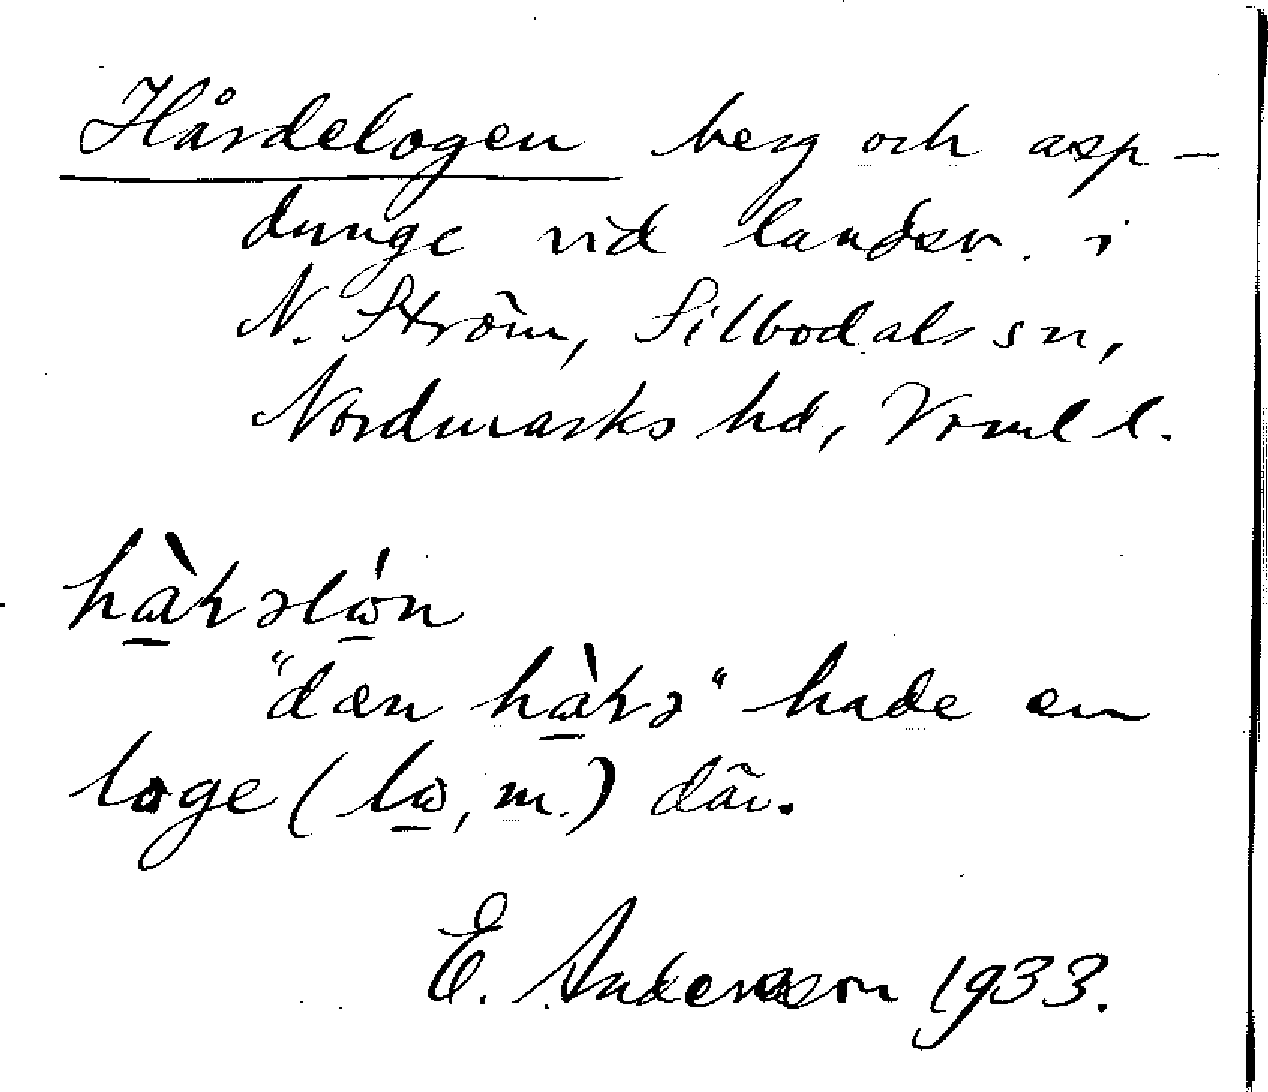 Hårdelogen berg och asp-
dunge vid landsv. i
N. Ström, Silbodals sn,
Nordmarks hd, Vrml l.
"dæn
hade en
loge (lω̲, m.) där.
E. Andersson 1933.